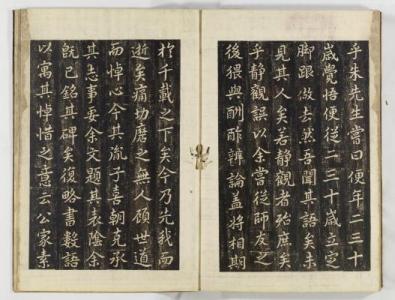 乎朱先生嘗曰便年二三十
歲覺悟便從二三十歲立定
脚跟做去然吾聞其語矣未
見其人矣若靜觀者殆庶矣
乎靜觀誤以余嘗從師友之
後猥與酬酢辨論蓋將相期
於千載之下矣今乃先我而
逝矣痛切磨之無人顧世道
而悼心今其流子喜朝克承
其志事要余文題其表陰余
旣已銘其碑矣復略書數語
以寓其悼惜之意云公家素